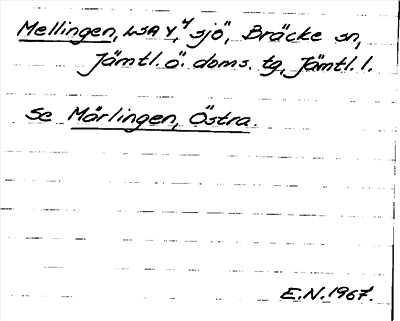 Mellingen, LSA Y, 4 sjö, Bräcke sn,
Jämtl. ö. doms. tg, Jämtl. l.
Se Mörlingen, Östra.
E.N. 1967.